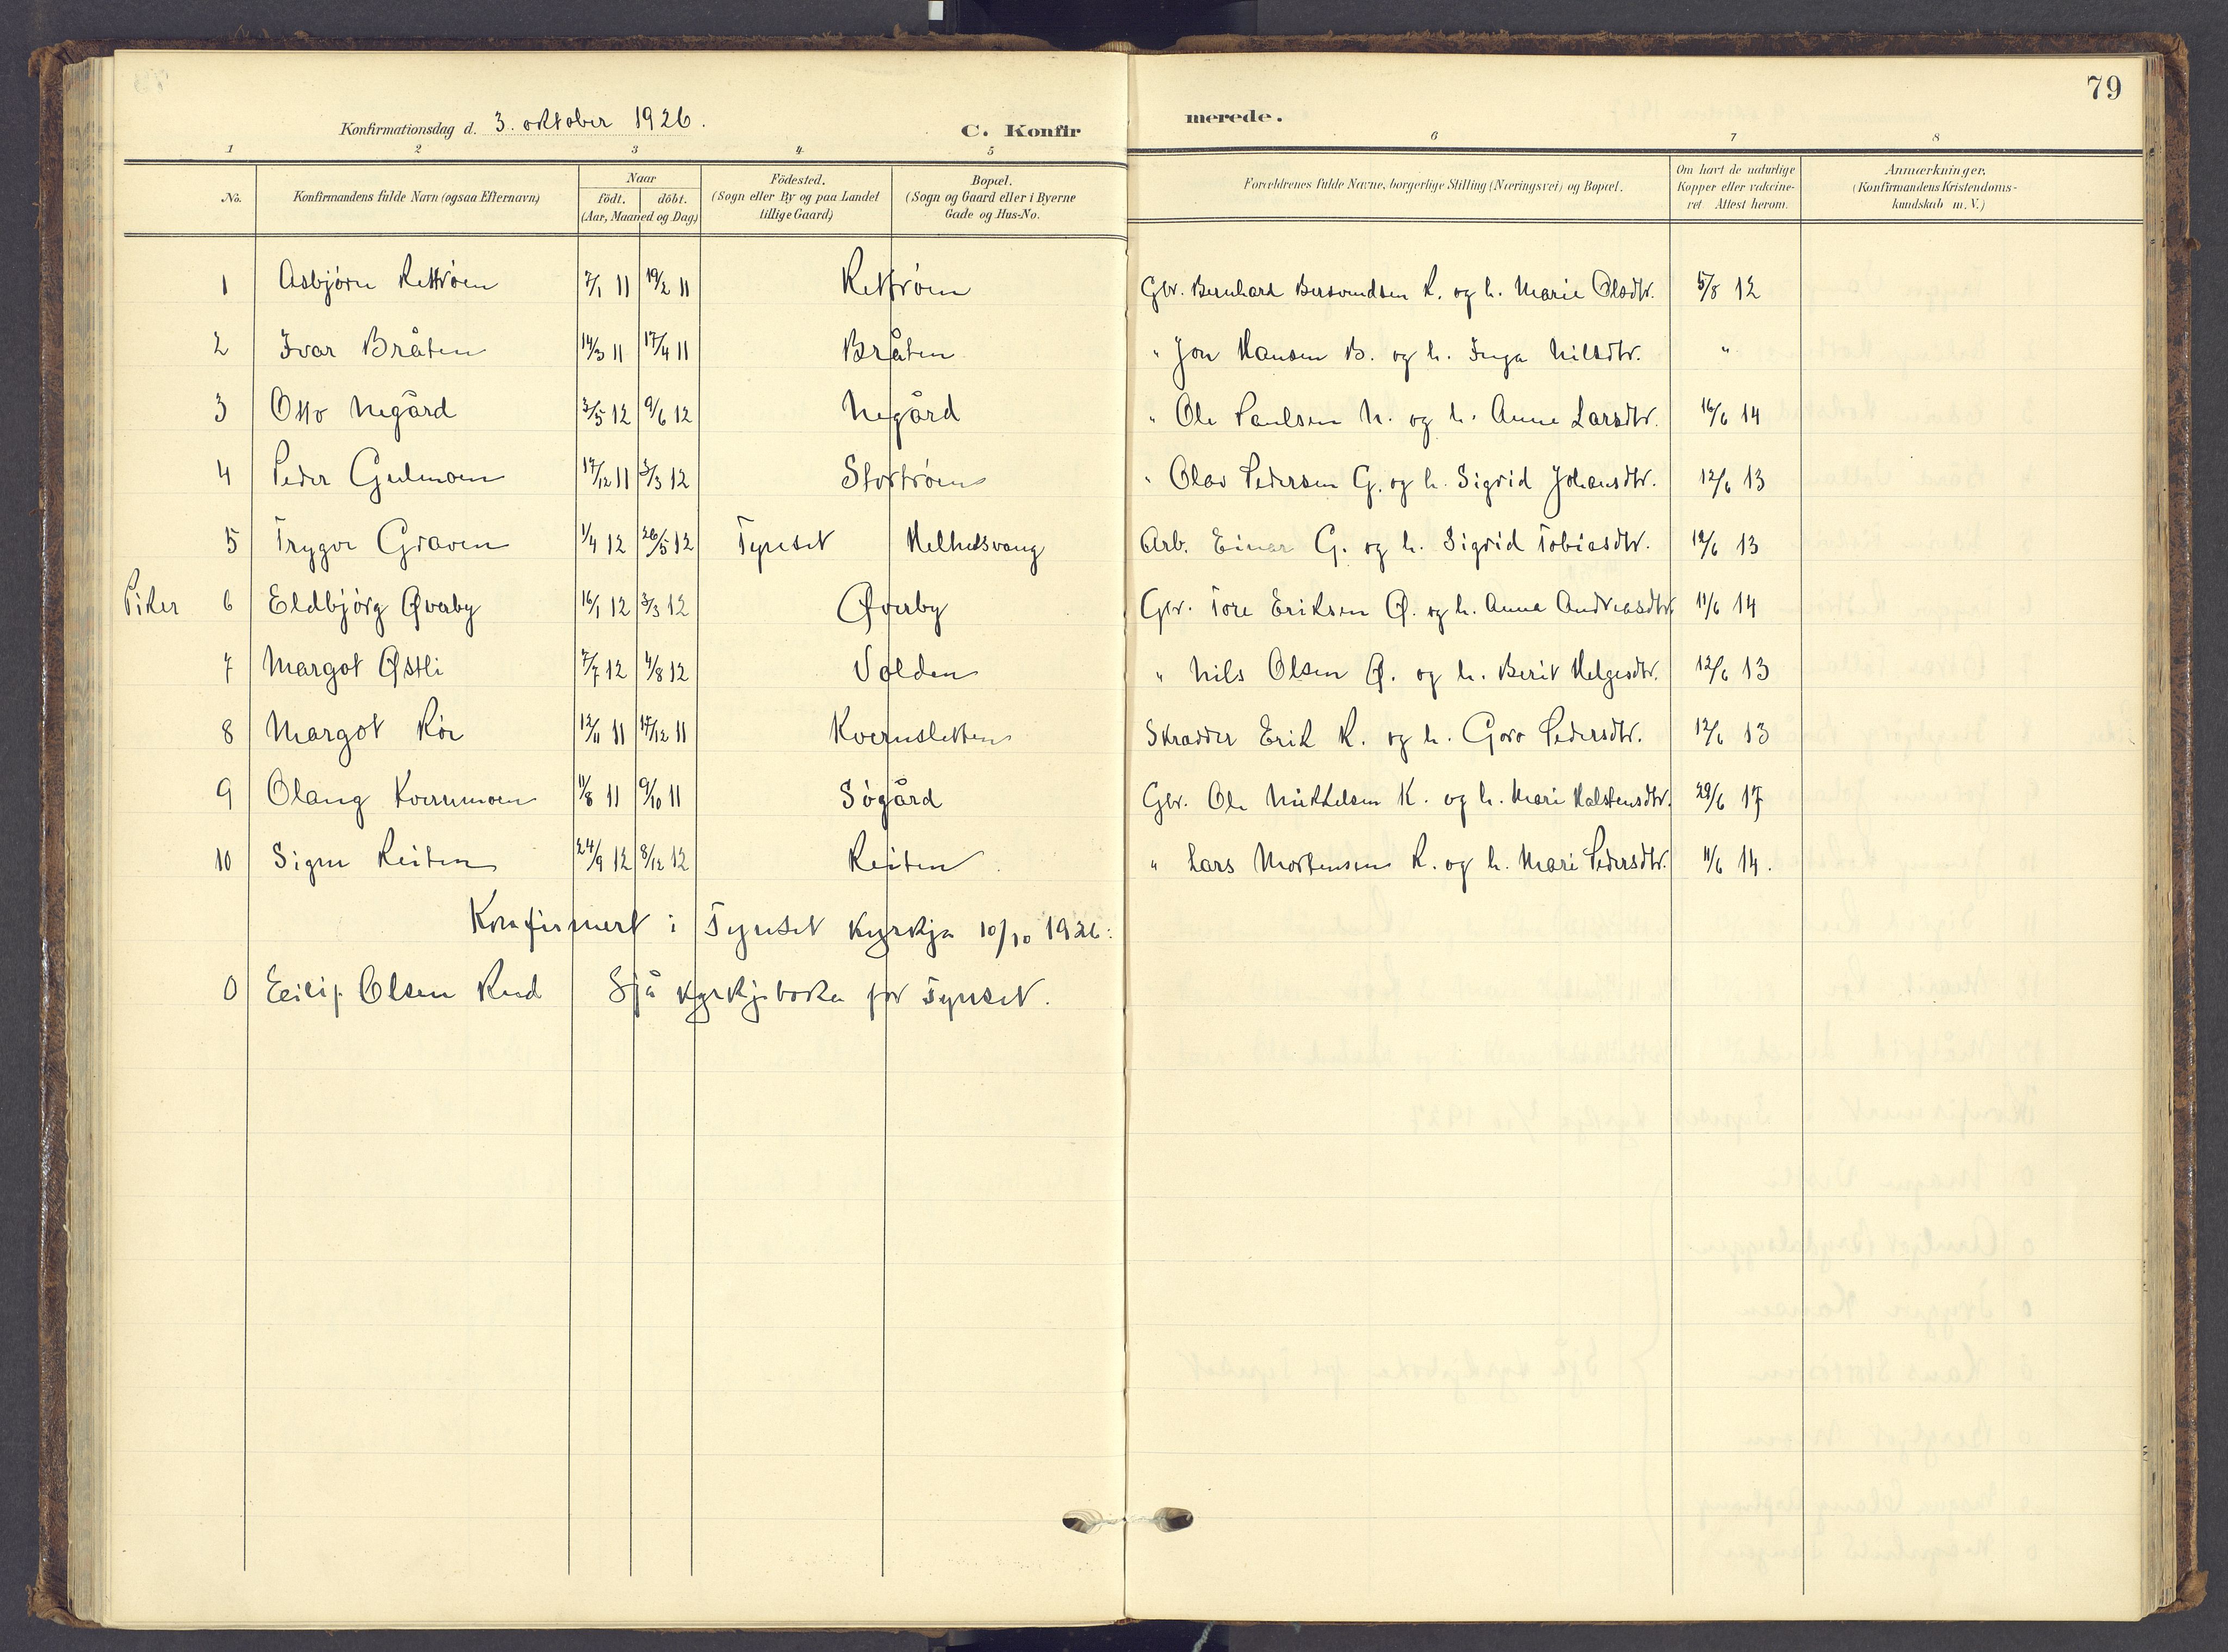 79
Konfirmationsdag d. 3. oktober 1926. C. Konfirmerede.
1 2 3 4 5 6 7 8
No. Konfirmandens fulde Navn (ogsaa Efternavn) Naar födt. döbt. (Aar, Maaned og Dag) Födested. (Sogn eller By og paa Landet tillige Gaard) Bopæl. (Sogn og Gaard eller i Byerne Gade og Hus-No. Forældrenes fulde Navne, borgerlige Stilling (Næringsvei) og Bopæl. Om havt de naturlige Kopper eller vakcineret. Attest herom. Anmærkninger. (Konfirmandens Kristendomskundskab m. V.)
1 Asbjörn Rettröen 7/1 11 19/2 11 Rettröen Gbr. Bernhard Bersvendsen R. og h. Marie Olsdtr. 5/8 12
2 Ivar Bråten 14/3 11 17/4 11 Bråten " Jon Hansen B. og h. Inga Nilsdtr. "
3 Otto Negård 3/5 12 9/6 12 Negård " Ole Paulsen N. og h. Anne Larsdtr. 16/6 14
4 Peder Gulmoen 17/12 11 3/3 12 Stortröen " Olav Pedersen G. og h. Sigrid Johansdtr. 12/6 13
5 Trygve Graven 1/4 12 26/5 12 Tynset Melhusvang Arb. Einar G. og h. Sigrid Tobiasdtr. 12/6 13
Piker 6 Eldbjörg Øverby 16/1 12 3/3 12 Øverby Gbr. Tore Eriksen Ø. og h. Anna Andreasdtr. 11/6 14
7 Margot Østli 7/7 12 4/8 12 Volden " Nils Olsen Ø. og h. Berit Helgesdtr. 12/6 13
8 Margot Röe 12/11 11 17/12 11 Kvernsletten Skrædder Erik R. og h. Goro Pedersdtr. 12/6 13
9 Olaug Kvernmoen 11/8 11 9/10 11 Sögård Gbr. Ole Mikkelsen K. og h. Mari Halstensdtr. 29/6 17
10 Signe Reiten 24/9 12 8/12 12 Reiten " Lars Mortensen R. og h. Mari Pedersdtr. 11/6 14.
Konfirmert i Tynset kyrkja 10/10 1926:
0 Eilif Olsen Rud Sjå kyrkjeboka for Tynset.